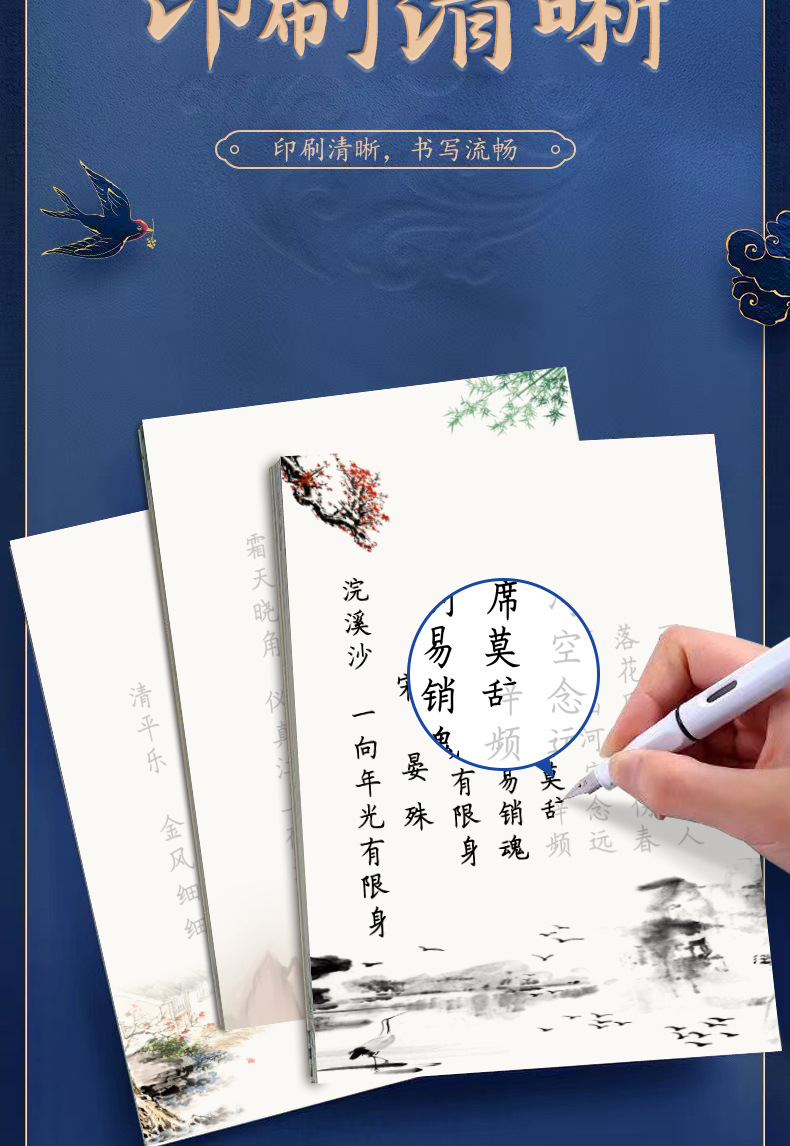 印刷清晰
印刷清晰，书写流畅
浣溪沙
一向年光有限身
晏殊
有限身
易销魂
莫辞
辞频
河空念远
落花
伤春
人
易销魂
席莫辞
辞频
空念远
霜天晓角
仪真江
清平乐
金风细细